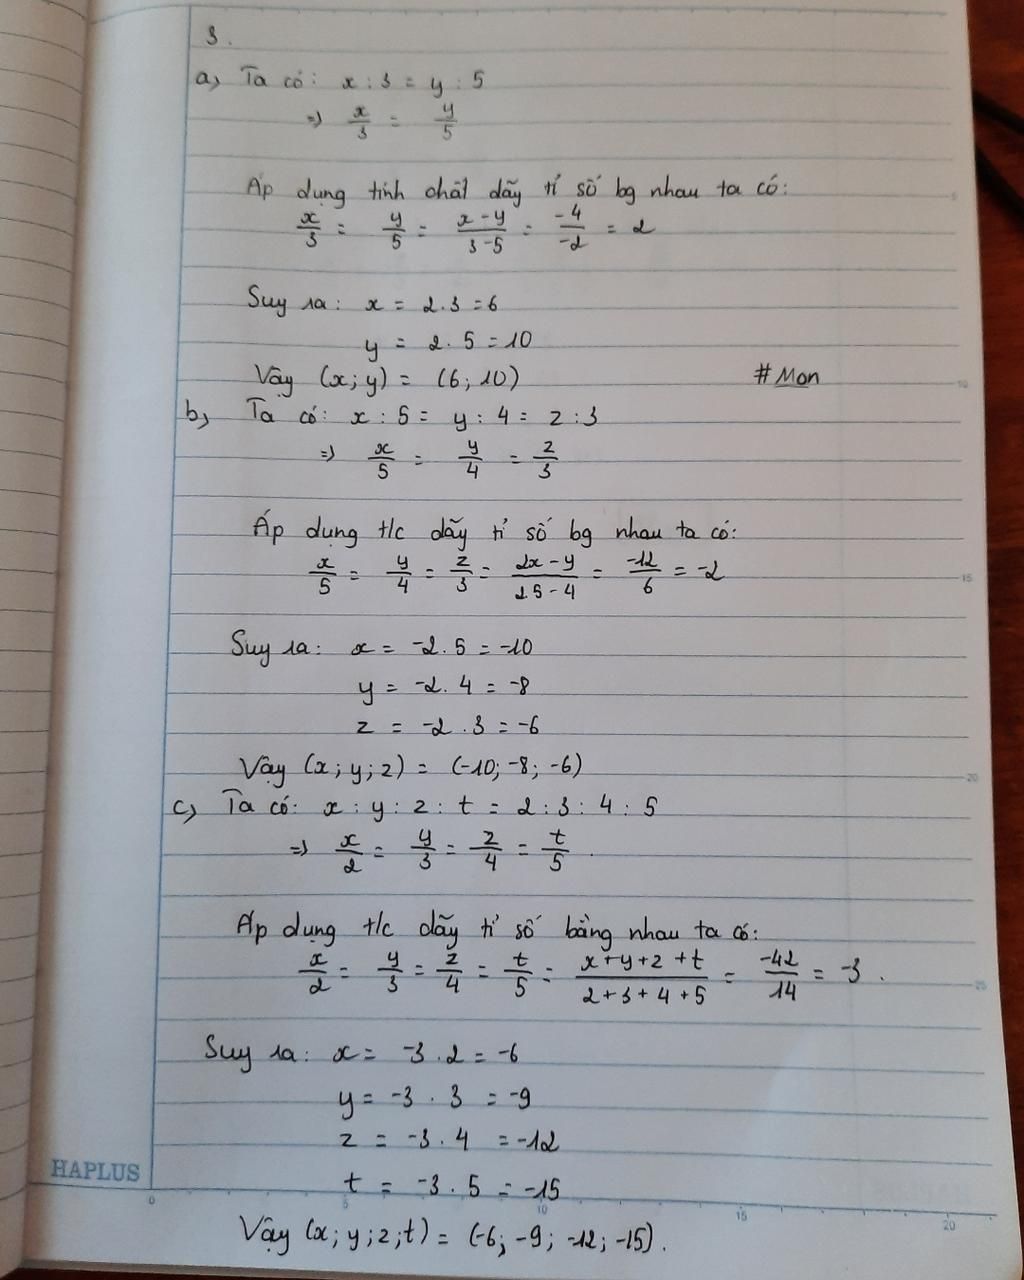 3.
a, Ta có: x : 3 = y : 5
=> x/3 = y/5
Áp dụng tính chất dãy tỉ số bg nhau ta có:
x/3 = y/5 = x-y/3-5 = -4/-2 = 2
Suy ra: x = 2.3 = 6
y = 2.5 = 10
Vậy (x; y) = (6; 10)
# Mon
b, Ta có: x : 5 = y : 4 = z : 3
=> x/5 = y/4 = z/3
Áp dụng t/c dãy tỉ số bg nhau ta có:
x/5 = y/4 = z/3 = 2x-y/2.5-4 = -12/6 = -2
Suy ra: x = -2.5 = -10
y = -2.4 = -8
z = -2.3 = -6
Vậy (x; y; z) = (-10; -8; -6)
c, Ta có: x : y : z : t = 2 : 3 : 4 : 5
=> x/2 = y/3 = z/4 = t/5.
Áp dụng t/c dãy tỉ số bằng nhau ta có:
x/2 = y/3 = z/4 = t/5 = x+y+z+t/2+3+4+5 = -42/14 = -3.
Suy ra: x = -3.2 = -6
y = -3.3 = -9
z = -3.4 = -12
t = -3.5 = -15
Vậy (x; y; z; t) = (-6; -9; -12; -15).
HAPLUS
0 5 10 15 20
5
10
15
20
25